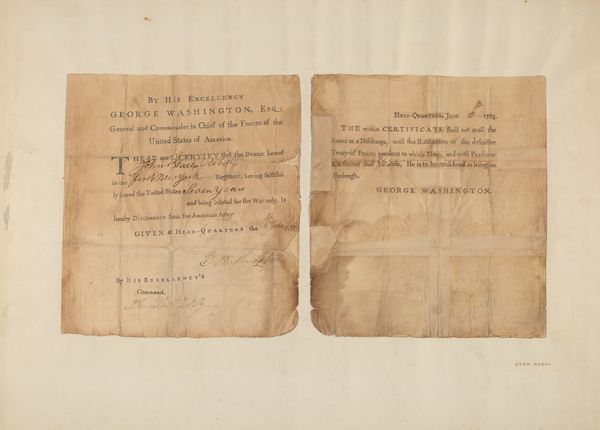 By His Excellency
GEORGE WASHINGTON, Esq;
General and Commander in Chief of the Forces of the
United States of America.
THESE are to CERTIFY that the Bearer hereof
John
in the first New York Regiment, having faithful-
ly served the United States Seven Years
and being inlisted for the War only, is
hereby Discharged from the American Army.
GIVEN at Head-Quarters the
G Washington
By His Excellency's
Command,
Head-Quarters, June 8th 1783.
THE within CERTIFICATE shall not avail the
Bearer as a Discharge, until the Ratification of the definitive
Treaty of Peace; previous to which Time, and until Proclama-
tion thereof shall be made, He is to be considered as being on
Furlough.
GEORGE WASHINGTON.
JOHN KOEHL